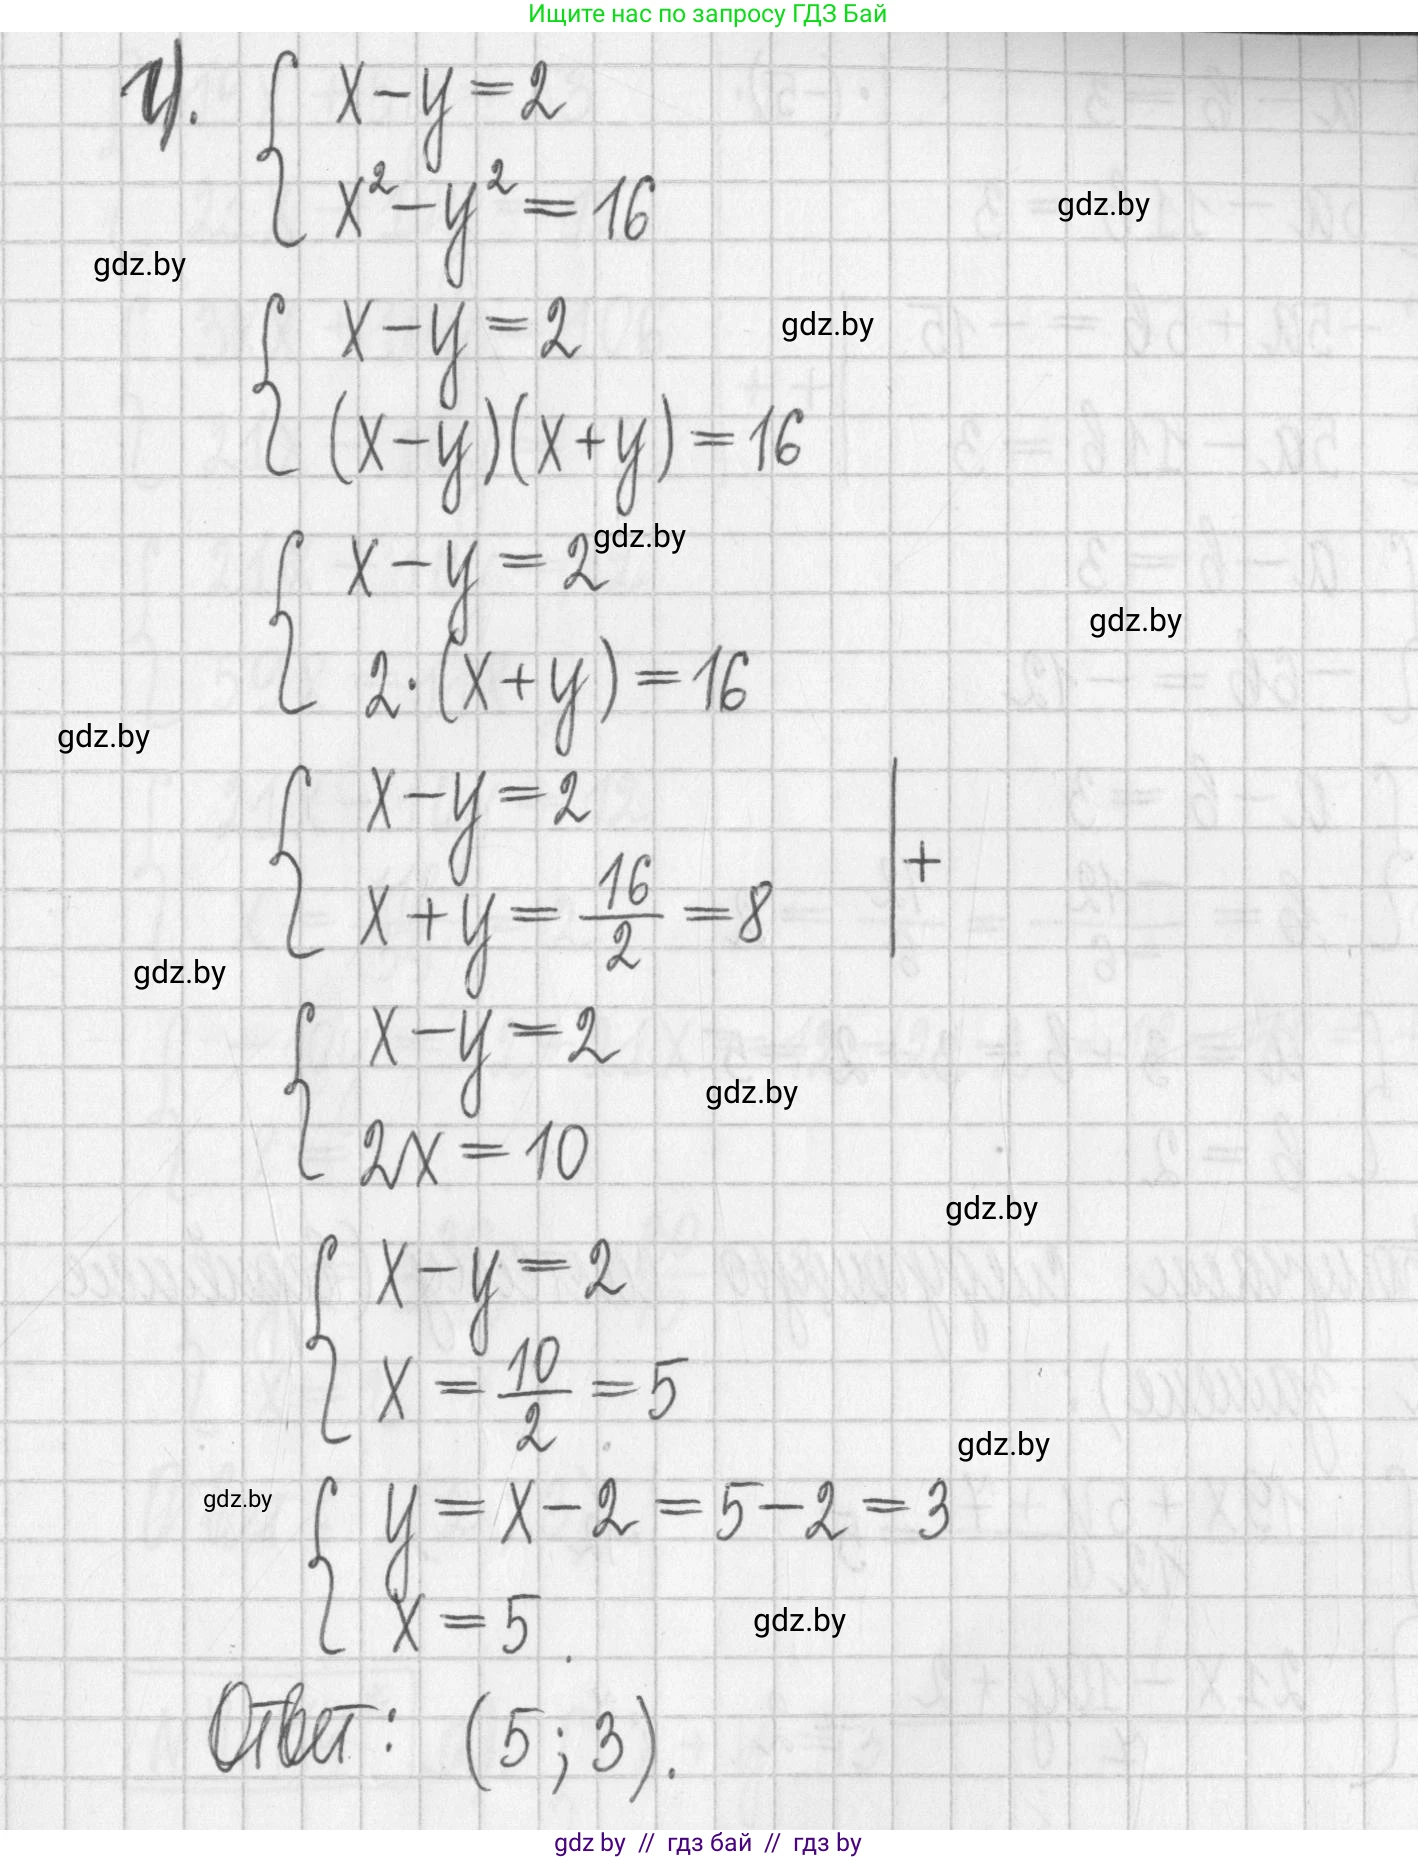 Ищите нас по запросу ГДЗ Бай
г).
x-y=2
x²-y²=16
gdz.by
gdz.by
x-y=2
gdz.by
(x-y)(x+y)=16
x-y=2
gdz.by
gdz.by
2·(x+y)=16
gdz.by
x-y=2
+
x+y=16/2=8
gdz.by
x-y=2
gdz.by
2x=10
gdz.by
x-y=2
x=10/2=5
gdz.by
gdz.by
y=x-2=5-2=3
x=5.
gdz.by
Ответ: (5;3).
gdz.by // гдз бай // гдз by